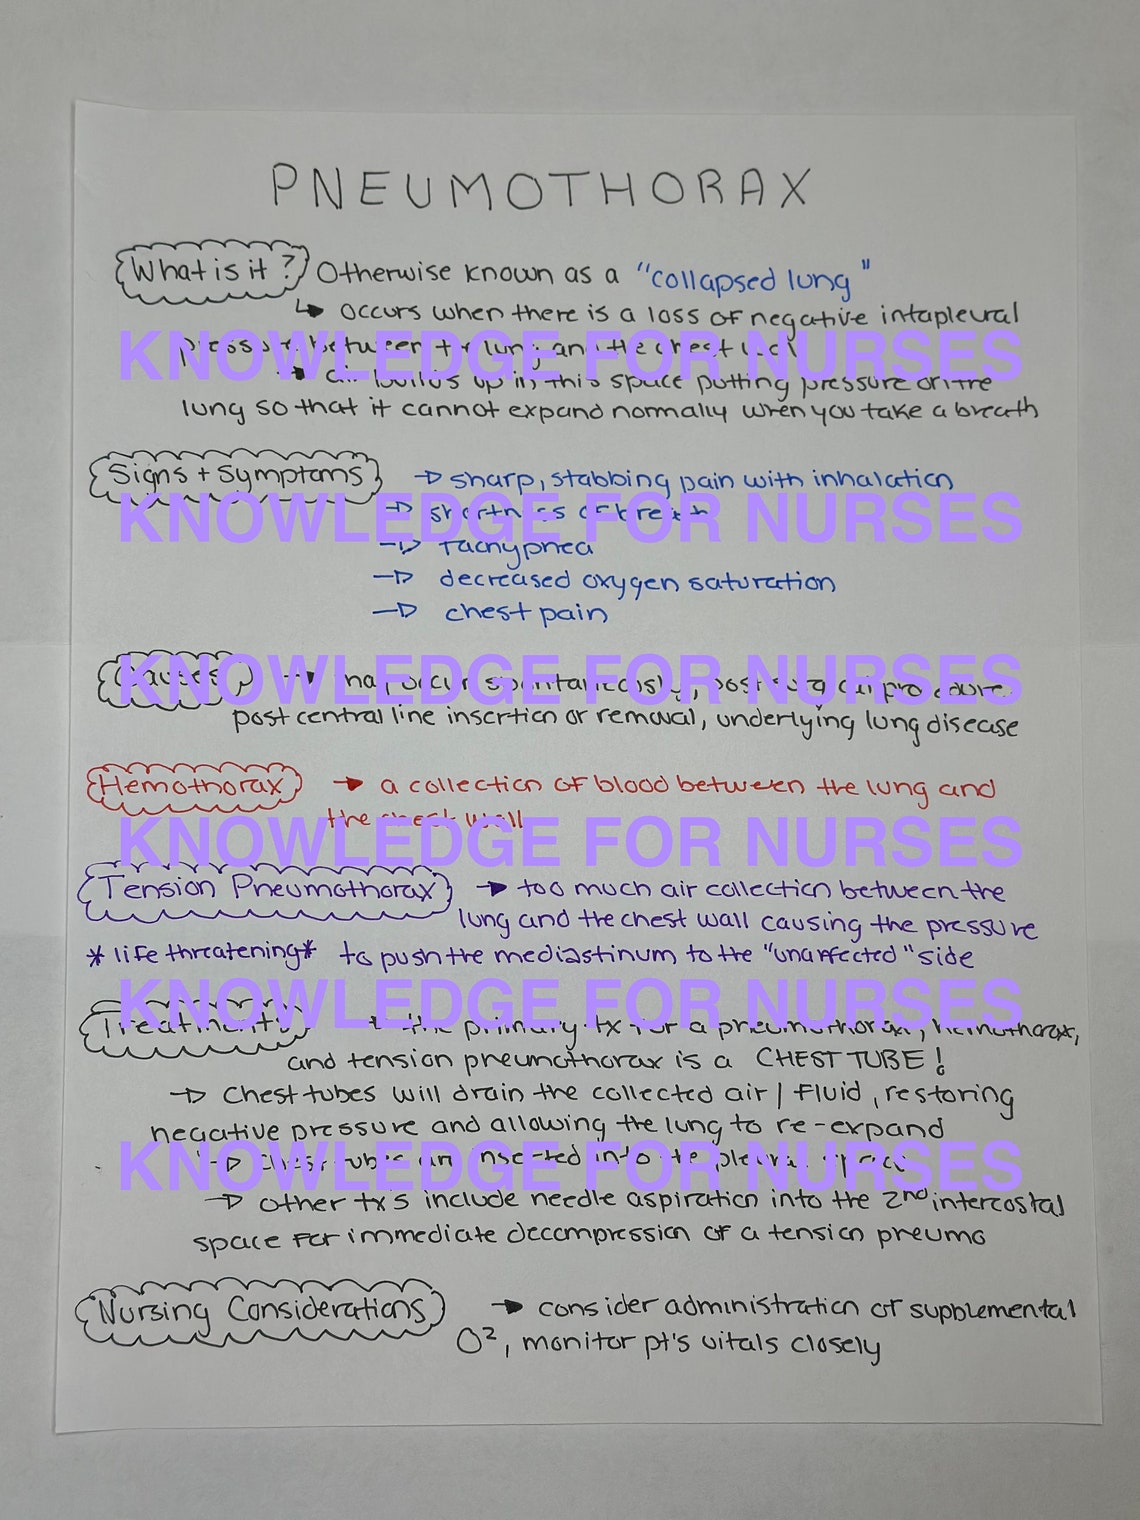 PNEUMOTHORAX
What is it? Otherwise known as a "collapsed lung"
↳ occurs when there is a loss of negative intapleural
KNOWLEDGE FOR NURSES
pressure between the lung and the chest wall
→ air builds up in this space putting pressure on the
lung so that it cannot expand normally when you take a breath
Signs + Symptoms → sharp, stabbing pain with inhalation
KNOWLEDGE FOR NURSES
→ shortness of breath
→ tachypnea
→ decreased oxygen saturation
→ chest pain
KNOWLEDGE FOR NURSES
Causes → may occur spontaneously, post surgical procedure,
post central line insertion or removal, underlying lung disease
Hemothorax → a collection of blood between the lung and
the chest wall
KNOWLEDGE FOR NURSES
Tension Pneumothorax → too much air collection between the
lung and the chest wall causing the pressure
* life threatening * to push the mediastinum to the "unaffected" side
KNOWLEDGE FOR NURSES
Treatments → the primary tx for a pneumothorax, hemothorax,
and tension pneumothorax is a CHEST TUBE!
→ Chest tubes will drain the collected air / fluid, restoring
negative pressure and allowing the lung to re-expand
KNOWLEDGE FOR NURSES
→ chest tubes are inserted into the pleural space
→ other txs include needle aspiration into the 2nd intercostal
space for immediate decompression of a tension pneumo
Nursing Considerations → consider administration of supplemental
O², monitor pt's vitals closely